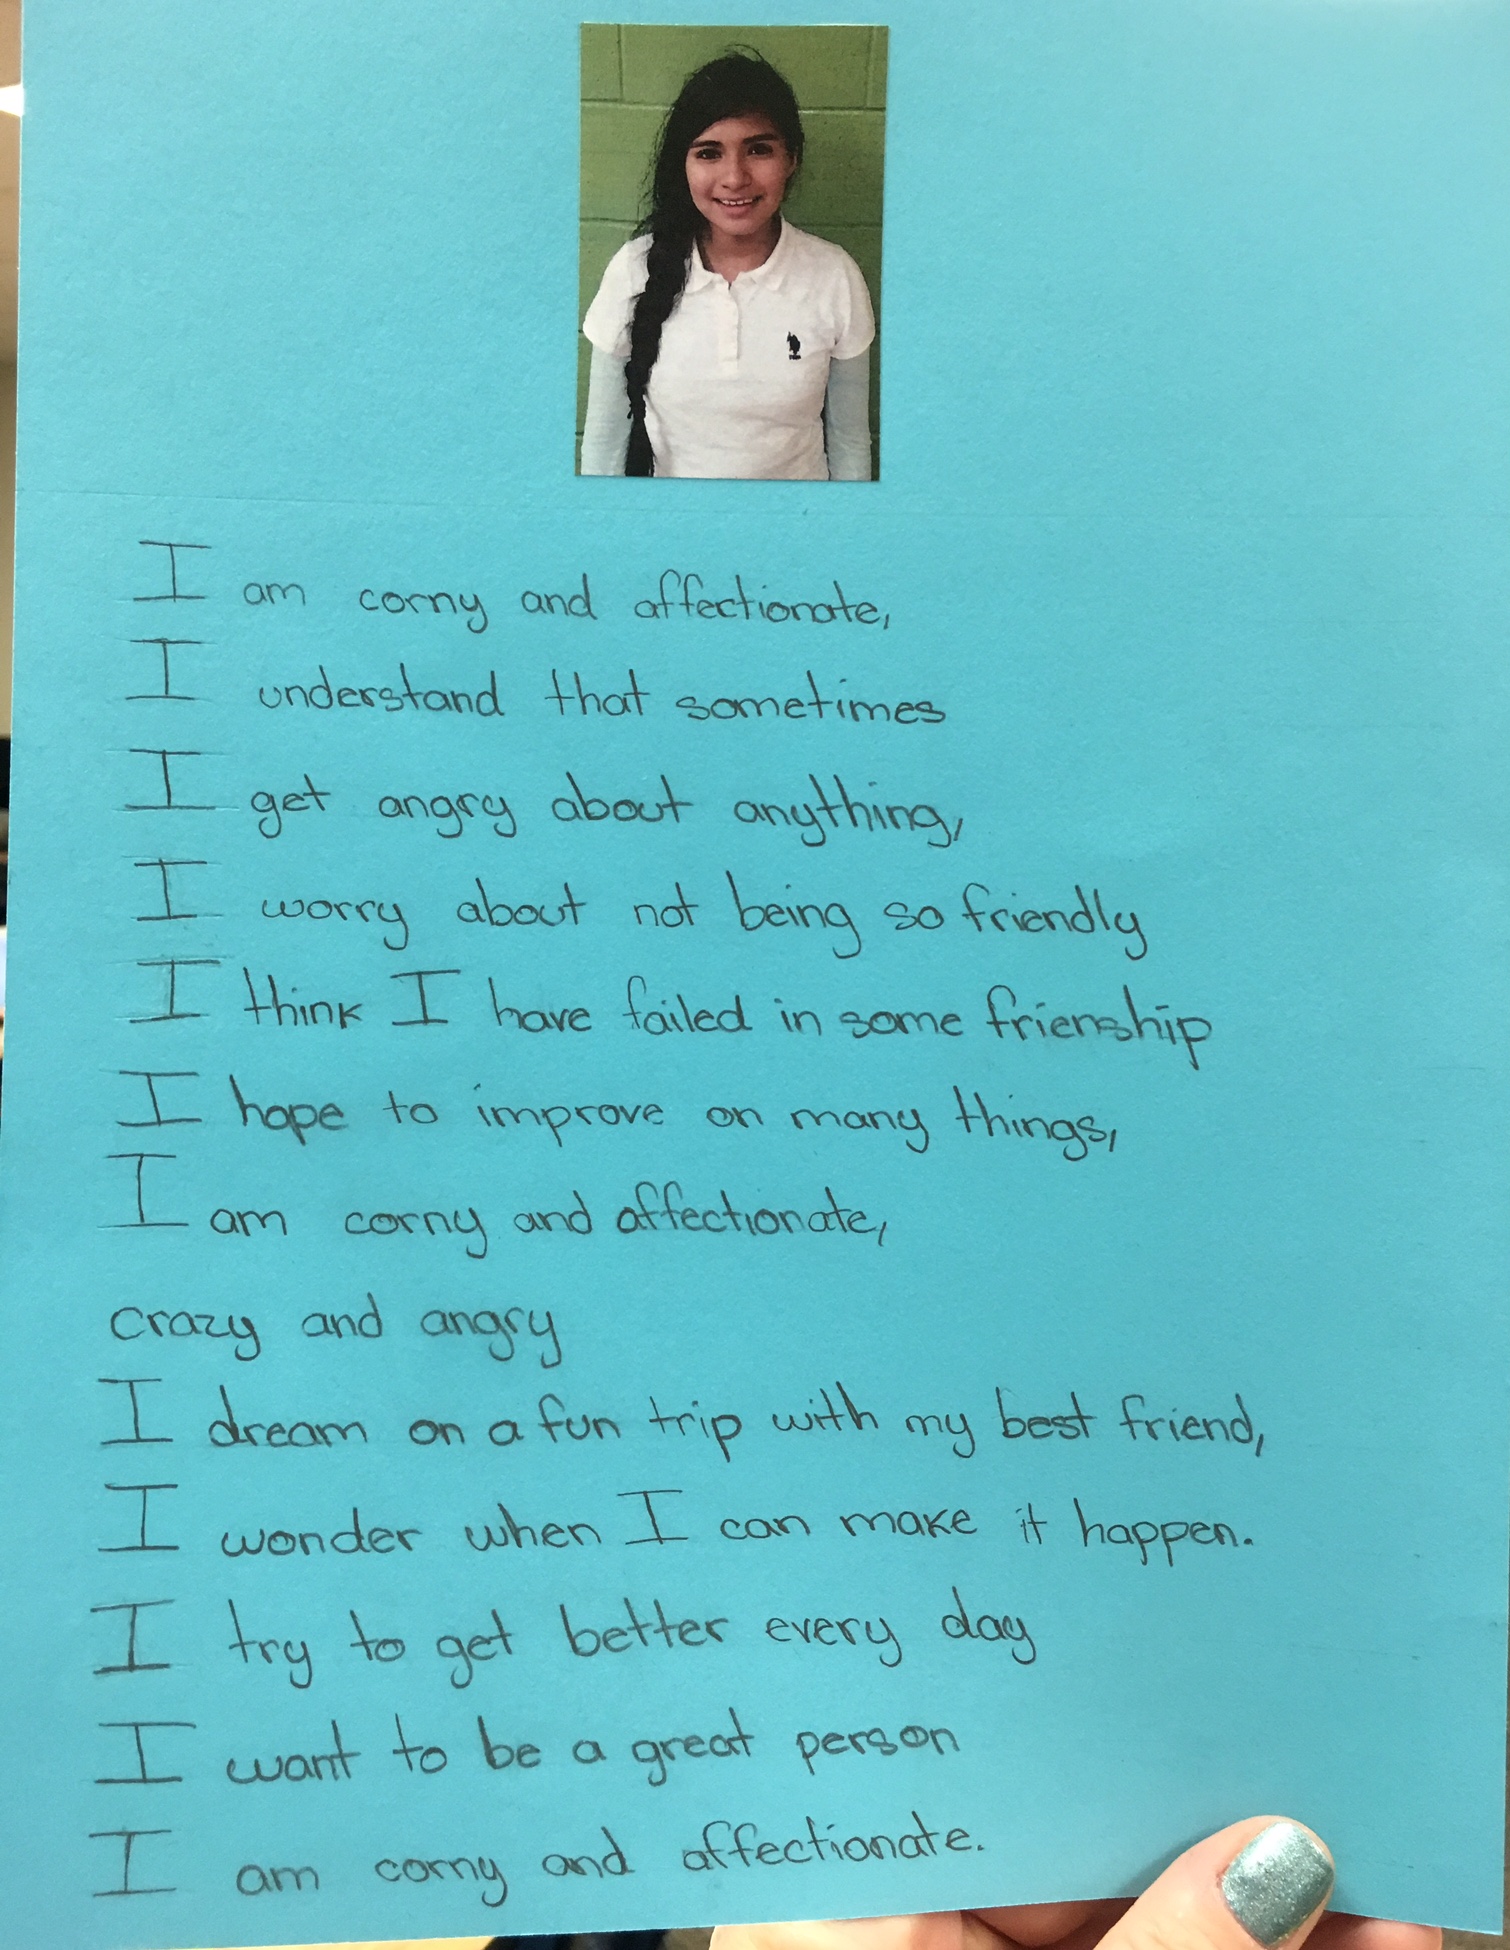 I am corny and affectionate,
I understand that sometimes
I get angry about anything,
I worry about not being so friendly
I think I have failed in some frienship
I hope to improve on many things,
I am corny and affectionate,
crazy and angry
I dream on a fun trip with my best friend,
I wonder when I can make it happen.
I try to get better every day
I want to be a great person
I am corny and affectionate.